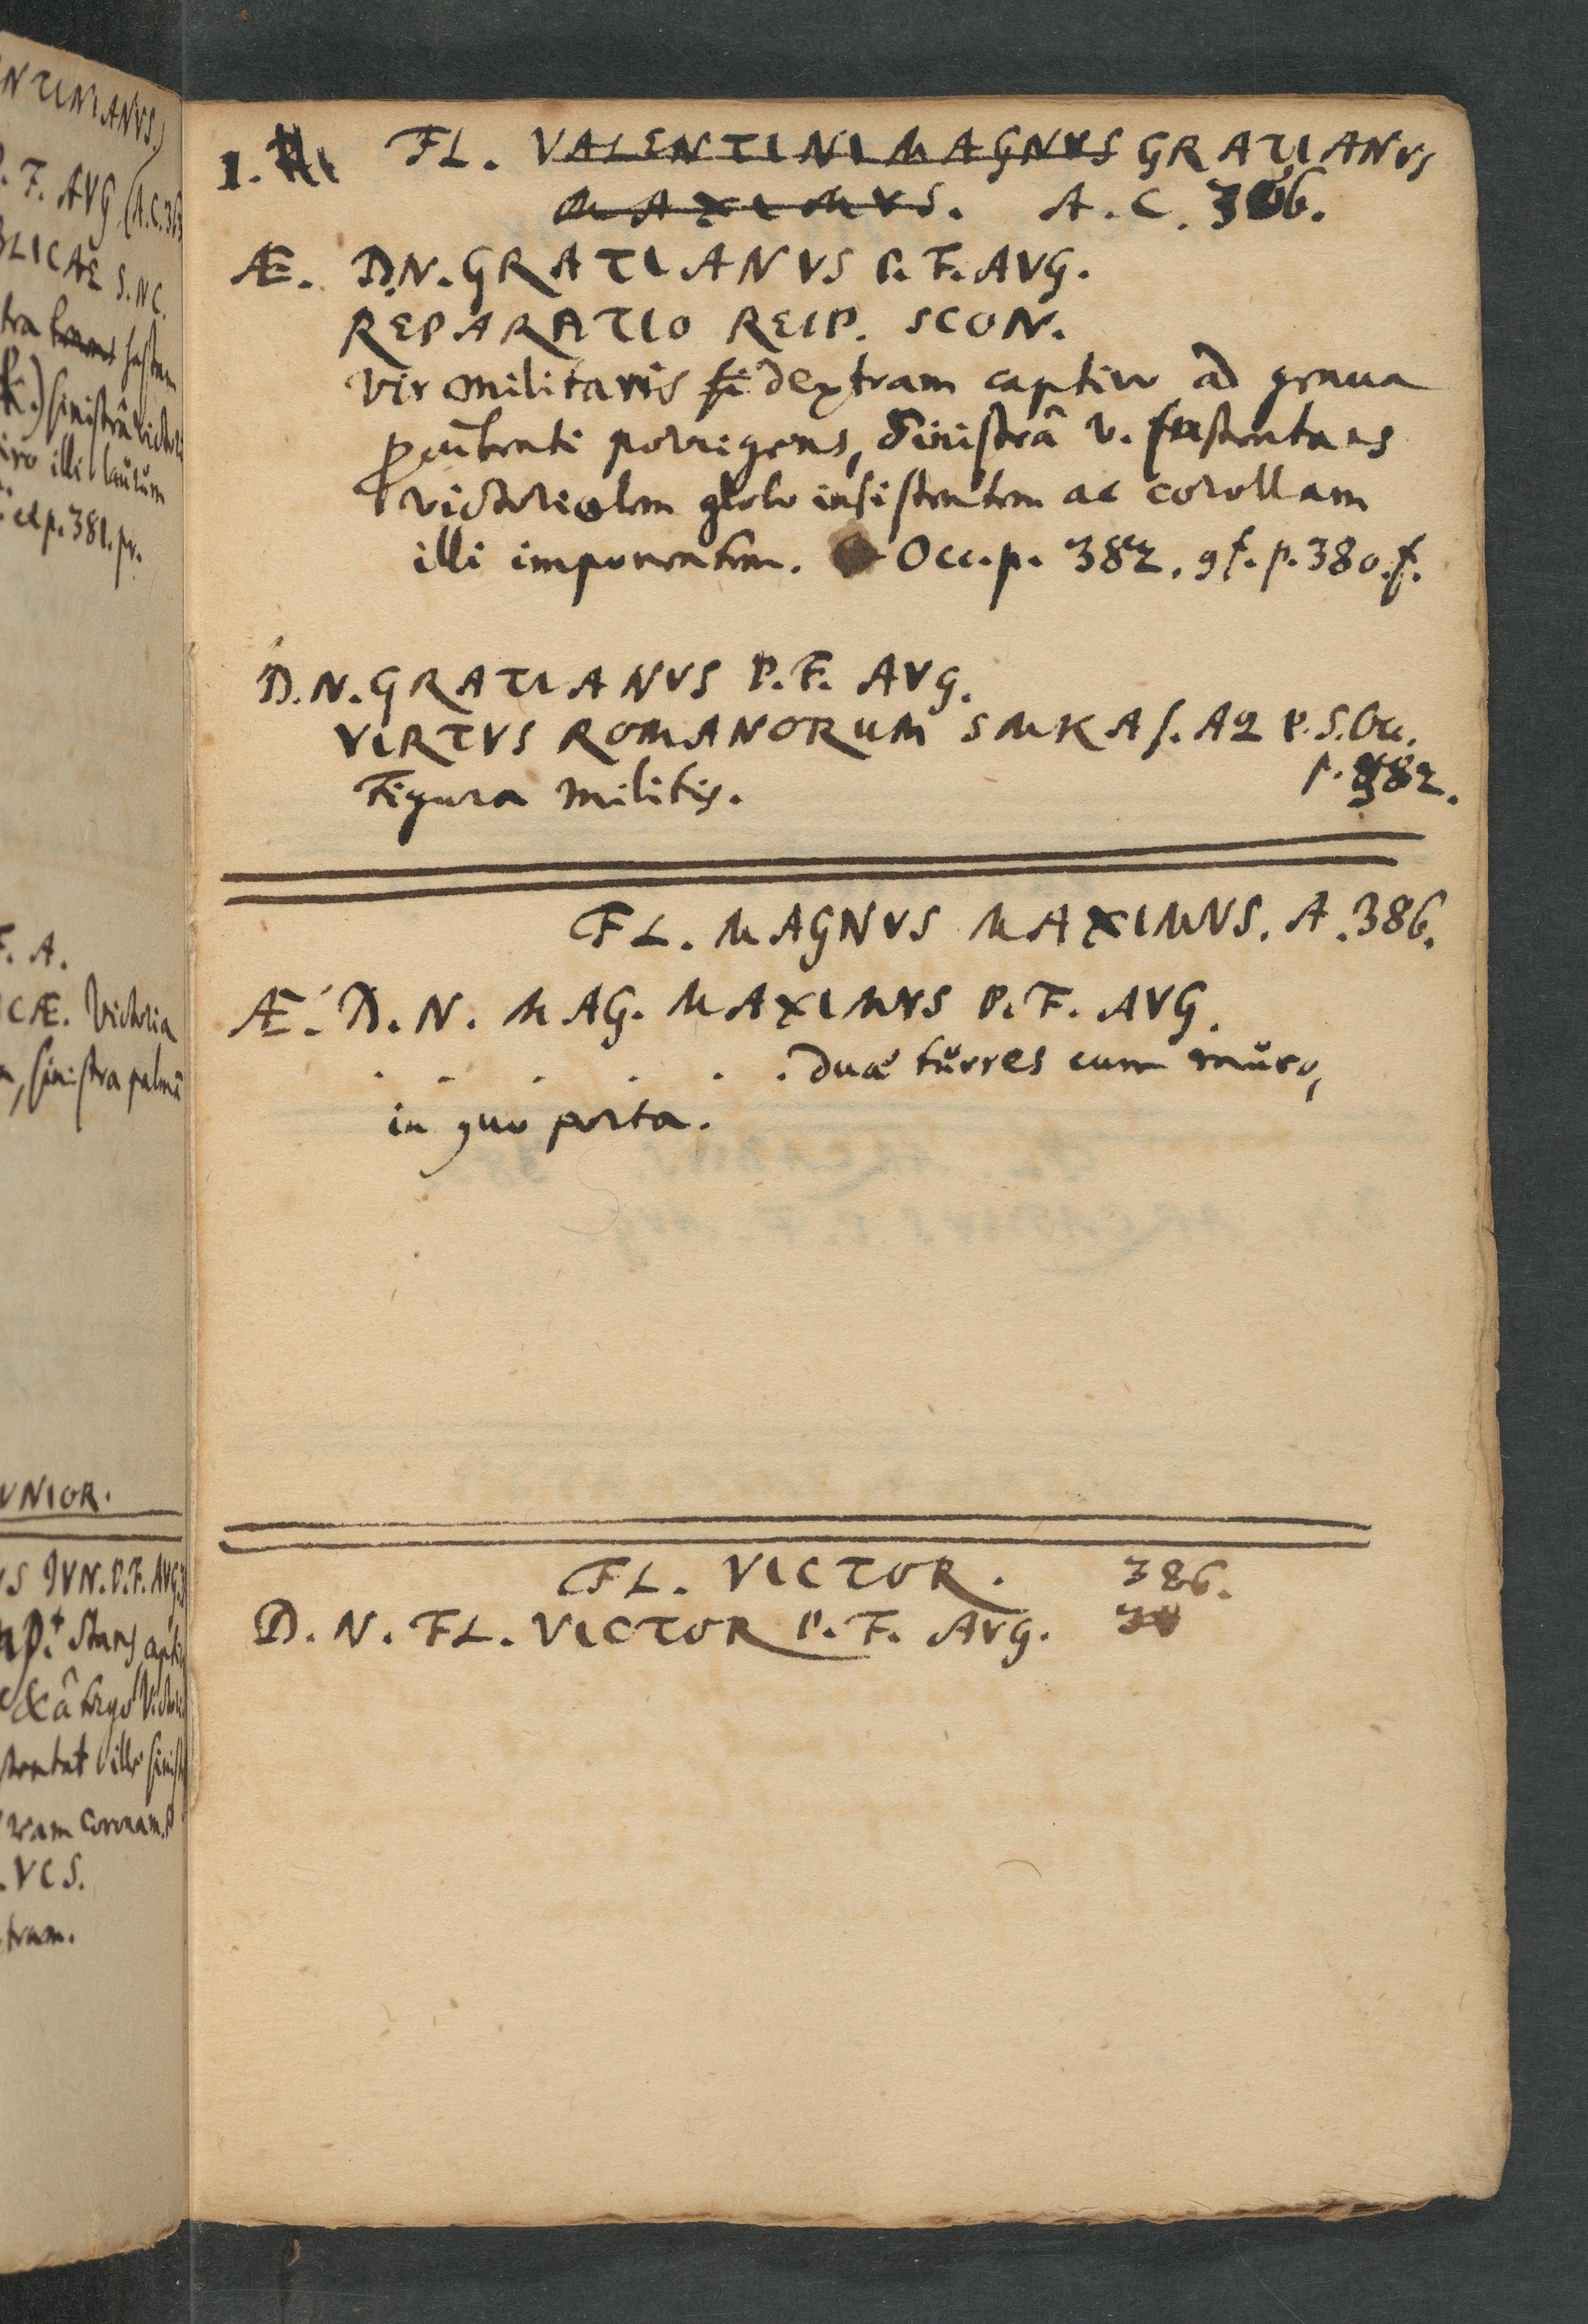 NTINIANVS.
P. F. AVG (A.C. 36
BLICAE S.NC.
tra hastam
sinistrâ victori
iro illi laurum
el p. 381. pr.
F. A.
CÆ. Victoria
sinistra palmâ
VNIOR.
VS IVN. P. F. AVG
stans capti
& â tergo Victo
stentat ille sinist
ram coronam
VCS.
tram.
1. FL. VALENTINI MAGNVS GRATIANVS
MAXIMVS. A. C. 366.
Æ. D.N. GRATIANVS P. F. AVG.
REPARATIO REIP. SCON.
Vir militaris si dextram captivo ad genua
procumbenti porrigens, sinistrâ v. sustentans
victoriolam globo insistentem ac corollam
illi imponentem. Occ. p. 382. gf. p. 380. f.
D. N. GRATIANVS P. F. AVG.
VIRTVS ROMANORUM SMKA s. AQ P.S. Occ.
p. 382.
Figura militis.
FL. MAGNVS MAXIMVS. A. 386.
Æ. D. N. MAG. MAXIMVS P. F. AVG.
. . . . . . duæ tŭrres cum mŭro,
in quo porta.
FL. VICTOR. 386.
D. N. FL. VICTOR P. F. AVG.